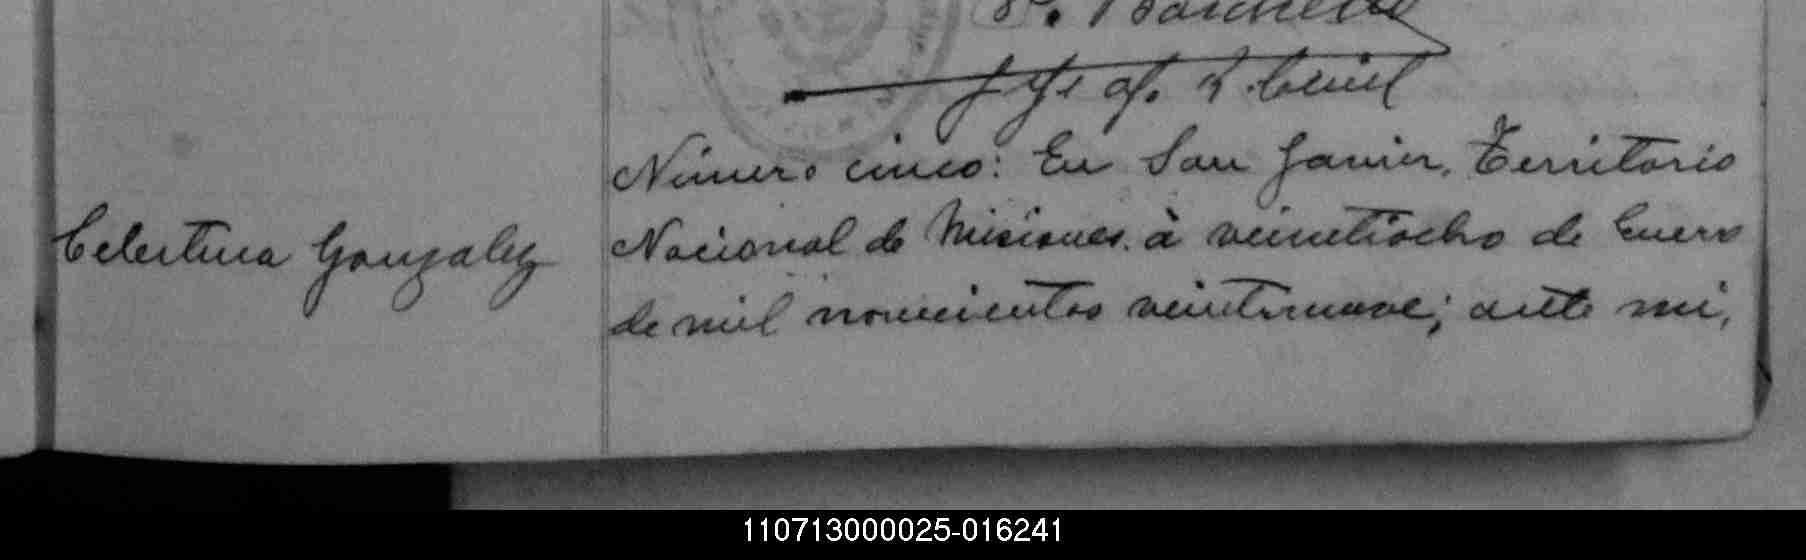 Número cinco: En San Javier, Territorio
Celestina Gonzalez
Nacional de Misiones. à veintiocho de Enero
de mil novecientos veintinueve; ante mi,
110713000025-016241